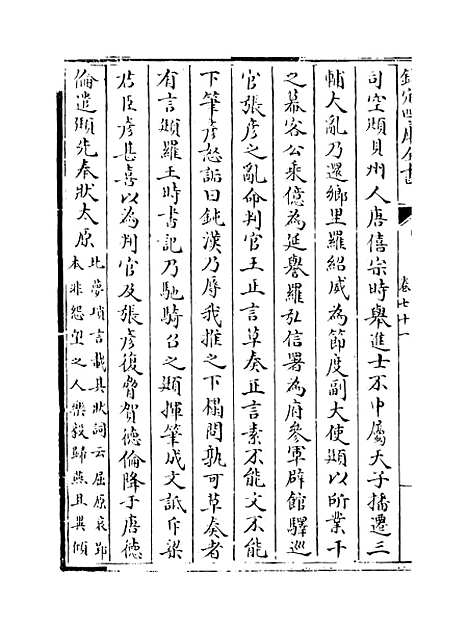 欽定四庫全書
卷七十一
司空頲貝州人唐僖宗時舉進士不中屬天子播遷三
輔大亂乃還鄉里羅紹威為節度副大使頲以所業干
之幕客公乘億為延譽羅弘信署為府參軍辟館驛巡
官張彥之亂命判官王正言草奏正言素不能文不能
下筆彥怒詬曰鈍漢乃辱我推之下榻問孰可草奏者
有言頲羅王時書記乃馳騎召之頲揮筆成文詆斥梁
君臣彥甚喜以為判官及張彥復脅賀德倫降于唐德
倫遣頲先奉狀太原
北夢瑣言載其狀詞云屈原哀郢
本非怨望之人樂毅歸燕且異傾